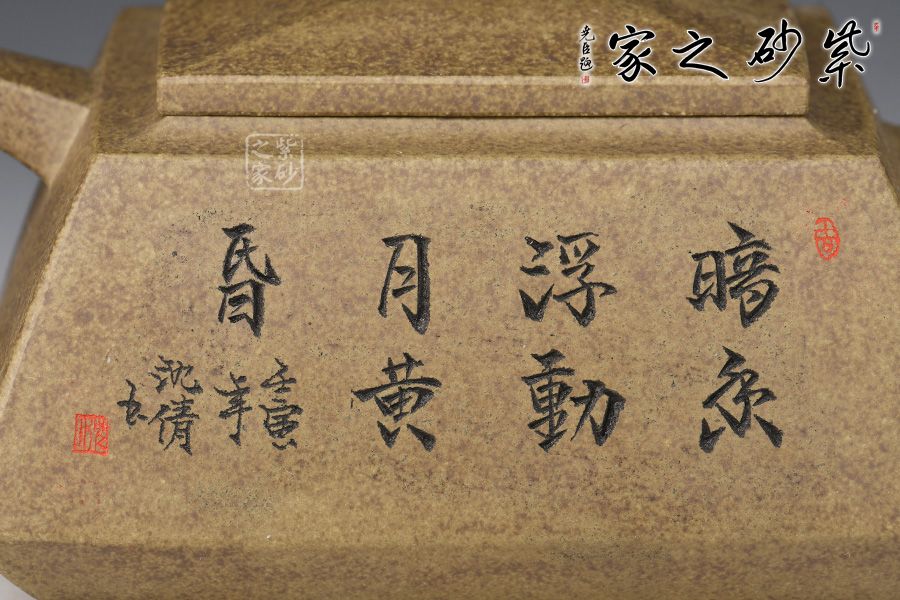 紫砂之家
尧臣题
紫砂之家
暗香
浮動
月黄
昏
壬寅
年
沈倩
书